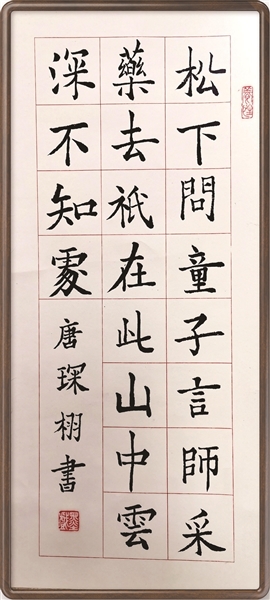 松下問童子言師采
藥去祇在此山中雲
深不知處
唐琛栩書